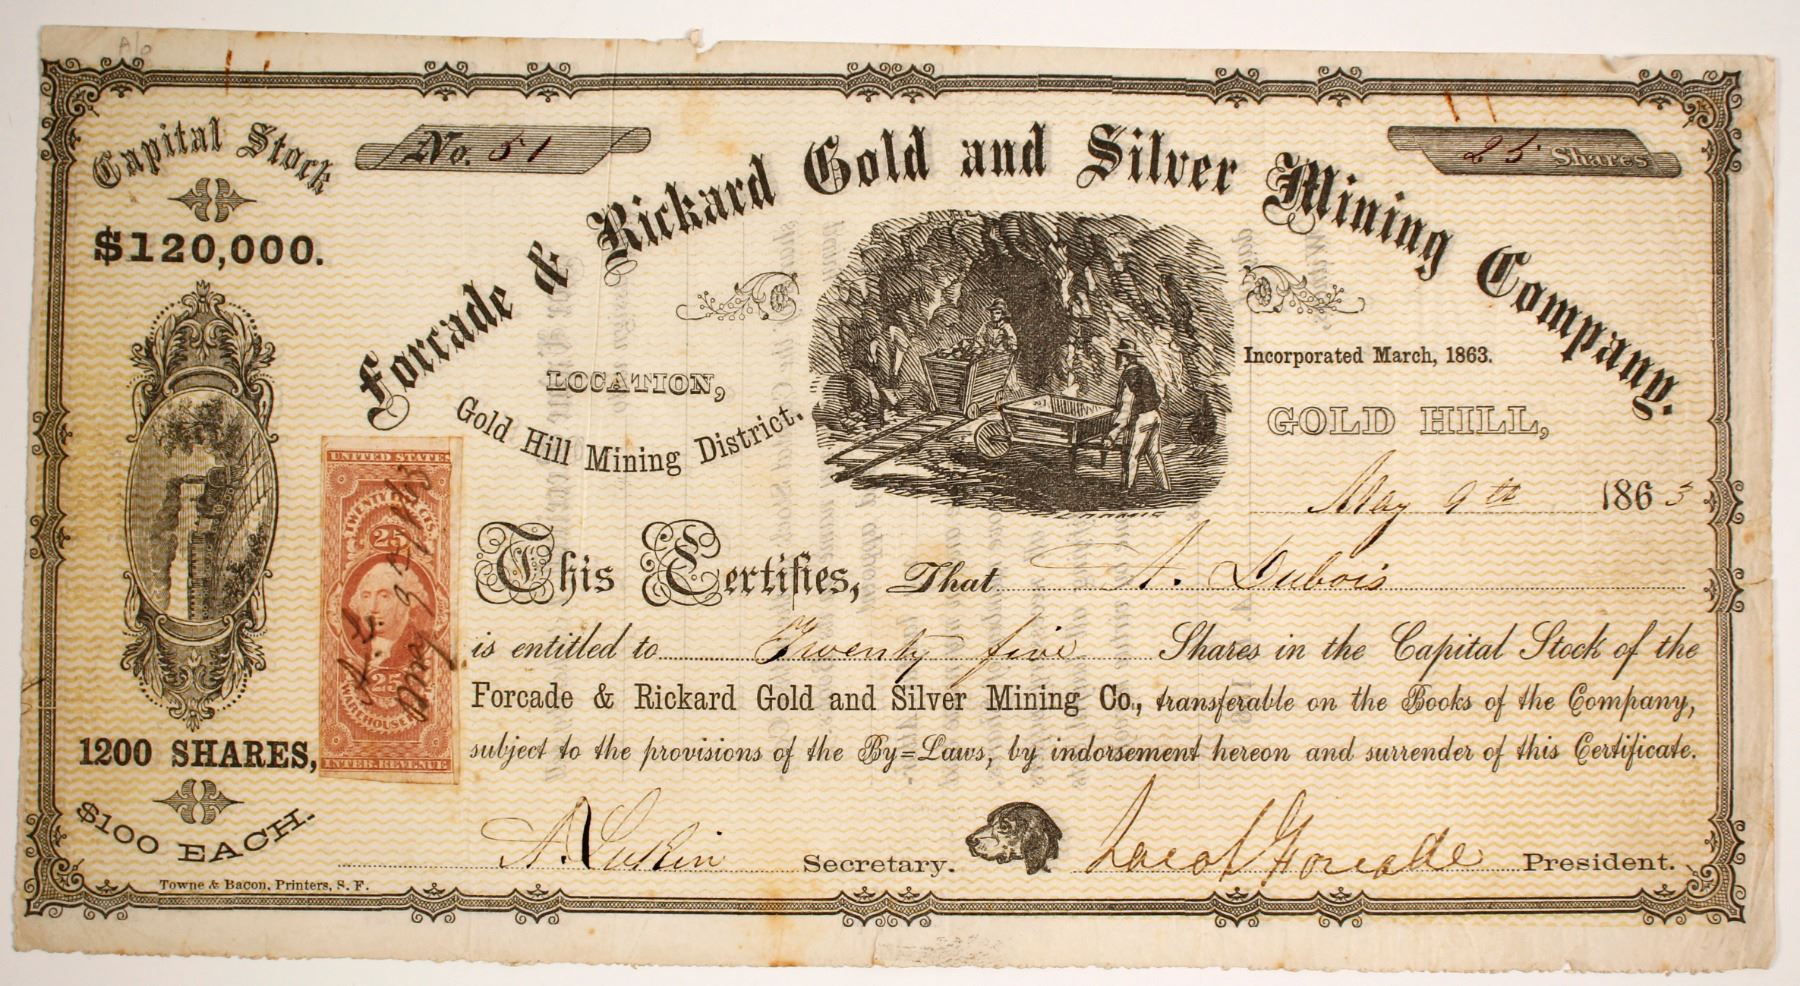 Capital Stock
$120,000.
1200 SHARES,
$100 EACH.
No. 51
25 Shares
Forcade & Rickard Gold and Silver Mining Company.
LOCATION,
Gold Hill Mining District.
Incorporated March, 1863.
GOLD HILL,
May 9th 1863
UNITED STATES
TWENTY FIVE CTS
25
25
WAREHOUSE
INTER. REVENUE
This Certifies, That A. Dubois
is entitled to Twenty five Shares in the Capital Stock of the
Forcade & Rickard Gold and Silver Mining Co., transferable on the Books of the Company,
subject to the provisions of the By=Laws, by indorsement hereon and surrender of this Certificate.
Secretary.
Jacob Forcade President.
Towne & Bacon, Printers, S. F.